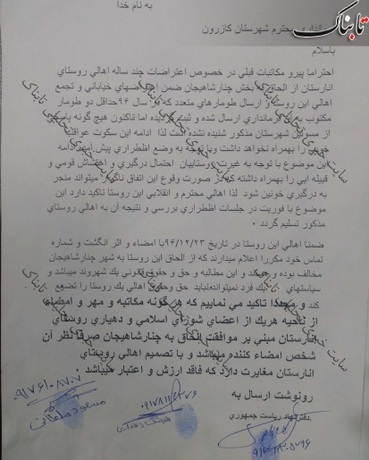 به نام خدا
تابناک
محترم شهرستان کازرون
باسلام
احتراما پیرو مکاتبات قبلی در خصوص اعتراضات چند ساله اهالی روستای
انارستان از الحاق بخش چنارشاهیجان ضمن خیابانی و تجمع
اهالی این روستا و ارسال طومارهای متعدد که سال ۹۶حداقل دو طومار
مکتوب به فرمانداری ارسال شده و ثبت گردیده اما تاکنون هیچ گونه
از مسولین شهرستان مذکور شنیده نشده است لذا ادامه این سکوت عواقب
را بهمراه نخواهد داشت و با توجه به وضع اظطراری پیش آمده
این موضوع با توجه به غیرت روستاییان احتمال درگیری و قومی و
قبیله ایی را بهمراه داشته که در صورت وقوع این اتفاق میتواند منجر
به درگیری خونین شود لذا اهالی محترم و انقلابی این روستا تاکید دارد این
موضوع با فوریت در جلسات اظطراری بررسی و نتیجه آن به اهالی روستای
مذکور تسلیم گردد .
ضمنا اهالی این روستا در تاریخ ۹۶/۱۲/۲۳ با امضاء و اثر انگشت و شماره
تماس خود مکررا اعلام میدارند که از الحاق این روستا به شهر چنارشاهیجان
مخالف بوده و هستند و این مطالبه و حق و حقوق قانونی یک شهروند میباشد و
سیاستهای یک فرد نمیتواند حق و حقوق اهالی یک روستا را تضیع
کند و مجددا تاکید می نماییم که هر گونه مکاتبه و مهر و امضاء
از ناحیه هریک از اعضای شورای اسلامی و دهیاری روستای
انارستان مبنی بر موافقت الحاق به چنارشاهیجان صرفا نظر آن
شخص امضاء کننده میباشد و با تصمیم اهالی روستای
انارستان مغایرت دارد که فاقد ارزش و اعتبار میباشد
رونوشت ارسال به
دفتر نهاد ریاست جمهوری